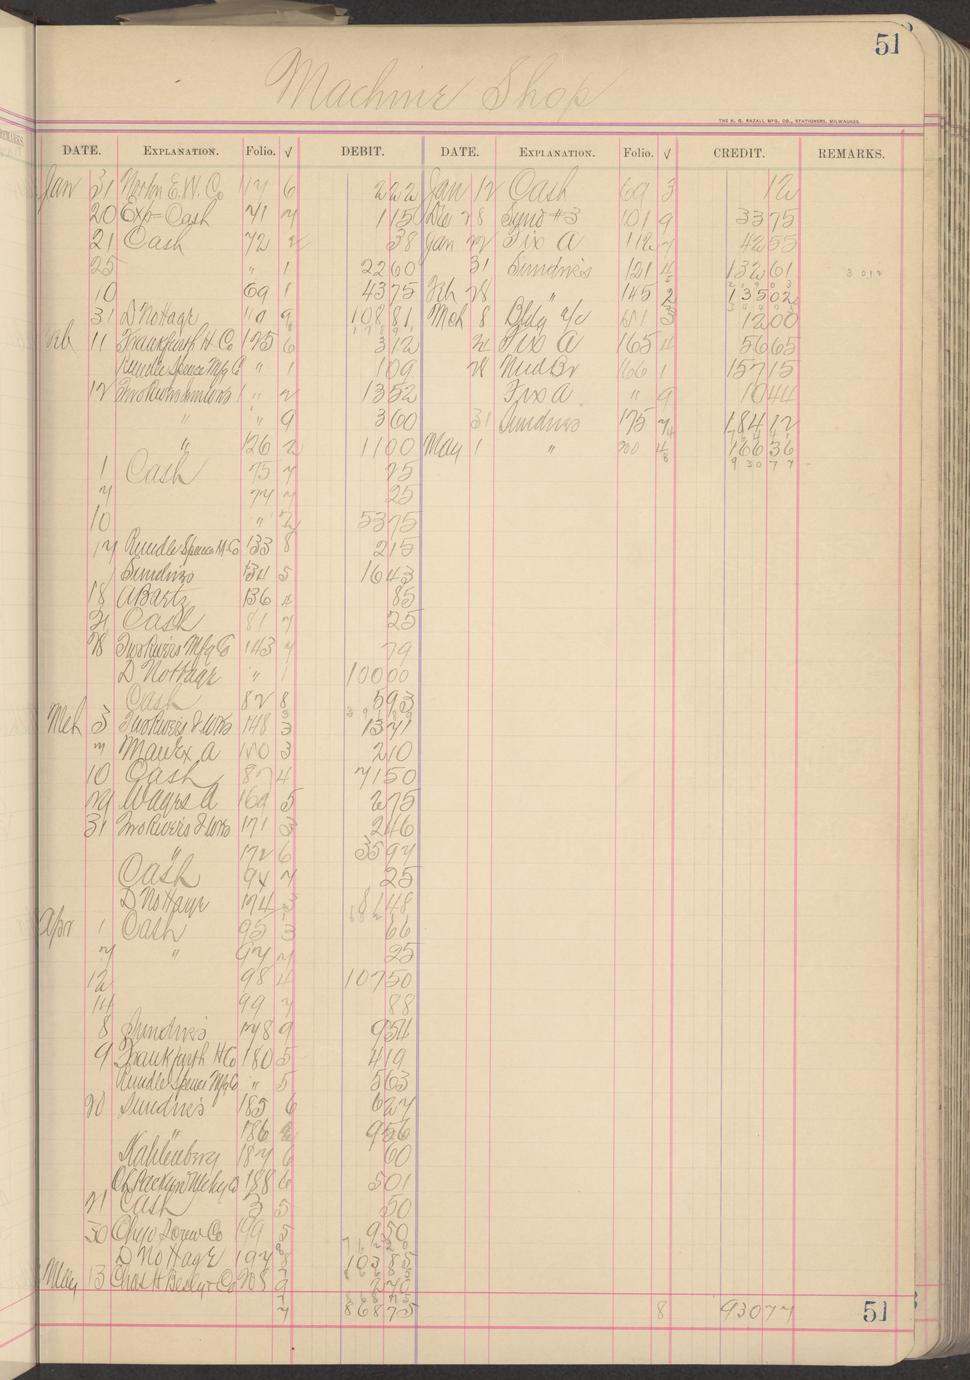 51
Machine Shop
THE H. G. RAZALL MFG. CO., STATIONERS, MILWAUKEE.
DATE. EXPLANATION. Folio. √ DEBIT. DATE. EXPLANATION. Folio. √ CREDIT. REMARKS.
Jan 31 E. W. Co 6 222 Jan 12 Cash 69 3 12
20 Exp= Cash 71 7 115 Dec 28 #3 101 9 3375
21 Cash 72 38 Jan 22 Fix A 112 7 4255
25 " 1 2260 31 Sundries 121 4 13261
10 69 1 4375 Feb 28 " 145 2 13502
31 D NoHage " 9 10881 Mch 8 Bldg a/c 151 3 1200
Feb 11 Frankfurth H Co 125 6 312 21 Fix A 165 4 5665
Rundle Spence Mfg C " 1 109 28 166 1 15715
12 " 2 1352 Fix A " 9 1044
" " 9 360 31 Sundries 175 7 18412
" 126 2 1100 May 1 " 200 4 16636
1 Cash 75 7 75
7 77 7 25
10 " 2 5375
17 Rundle Spence M Co 133 8 215
Sundries 134 5 1643
18 A Bartz 136 4 85
21 Cash 81 7 25
28 Two Rivers Mfg Co 143 7 79
D NoHage " 1 10000
Cash 82 8 593
Mch 3 Two Rivers & Wks 148 3 1371
7 A 150 3 210
10 Cash 87 4 7150
29 Wages A 169 5 275
31 Two Rivers & Wks 171 3 246
" 172 6 3597
Cash 94 7 25
D NoHage 174 3 8148
Apr 1 Cash 95 3 66
7 " 97 7 25
12 98 4 10750
14 99 7 88
8 Sundries 178 9 954
9 Frankfurth H Co 180 5 419
Rundle Spence Mfg Co " 5 563
20 Sundries 185 6 627
" 186 956
Kahlenberg 187 6 60
188 6 501
21 Cash 3 5 50
30 Screw Co 199 5 950
D NoHage 197 8 10385
May 13 Chas H Besly & Co 208 9 270
7 86875 8 93077 51